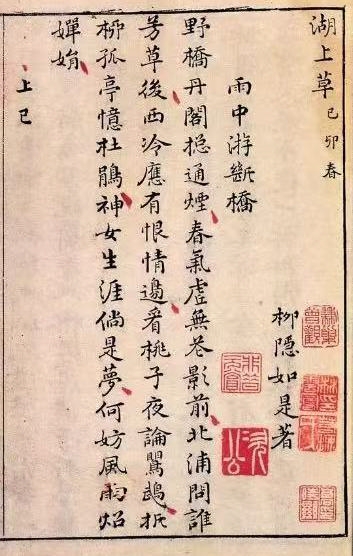 湖上草 己卯春
柳隱如是著
雨中游斷橋
野橋丹閣捴通煙春氣虛無花影前北浦問誰
芳草後西泠應有恨情邊看桃子夜論鸎鵡折
柳孤亭憶杜鵑神女生涯倘是夢何妨風雨炤
嬋娟
上巳